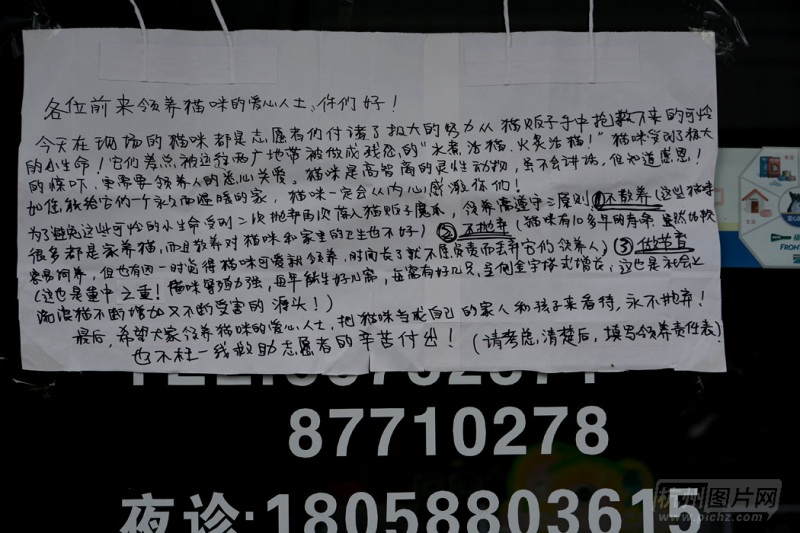 各位前来领养猫咪的爱心人士，你们好！
今天在现场的猫咪都是志愿者们付诸了极大的努力从猫贩子手中抢救下来的可怜
的小生命！它们差点被运往两广地带被做成残忍的“水煮活猫、火炙活猫！”猫咪受到了极大
的惊吓，更需要领养人的爱心关爱。猫咪是高智商的灵性动物，虽不会讲话，但知道感恩！
如您能给它们一个永久而温暖的家，猫咪一定会从内心感激你们！
为了避免这些可怜的小生命受到二次抛弃再次落入猫贩子魔爪，领养需遵守三原则①不散养（这些猫咪
很多都是家养猫，而且散养对猫咪和家里的卫生也不好）②不抛弃（猫咪有10多年的寿命，虽然比较
容易饲养，但也有因一时觉得猫咪可爱就领养，时间长了就不愿负责而丢弃它们的领养人）③做节育
（这也是重中之重！猫咪繁殖力强，每年能生好几窝，每窝有好几只，呈倒金字塔式增长，这也是社会上
流浪猫不断增加又不断受害的源头！）
最后，希望大家领养猫咪的爱心人士，把猫咪当成自己的家人和孩子来看待，永不抛弃！
也不枉一线救助志愿者的辛苦付出！（请考虑清楚后，填写领养责任表）
87710278
夜诊:18058803615
杭州图片网
www.pichz.com
FRONT